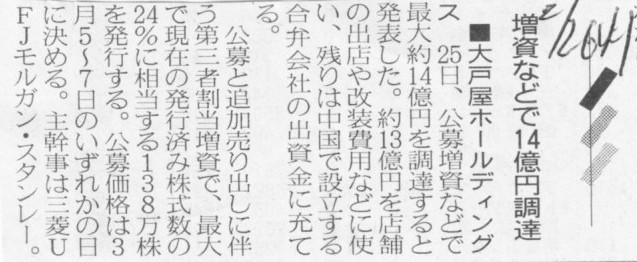 増資などで14億円調達
■大戸屋ホールディング
ス 25日、公募増資などで
最大約14億円を調達すると
発表した。約13億円を店舗
の出店や改装費用などに使
い、残りは中国で設立する
合弁会社の出資金に充て
る。
公募と追加売り出しに伴
う第三者割当増資で、最大
で現在の発行済み株式数の
24%に相当する138万株
を発行する。公募価格は3
月5~7日のいずれかの日
に決める。主幹事は三菱U
FJモルガン・スタンレー。